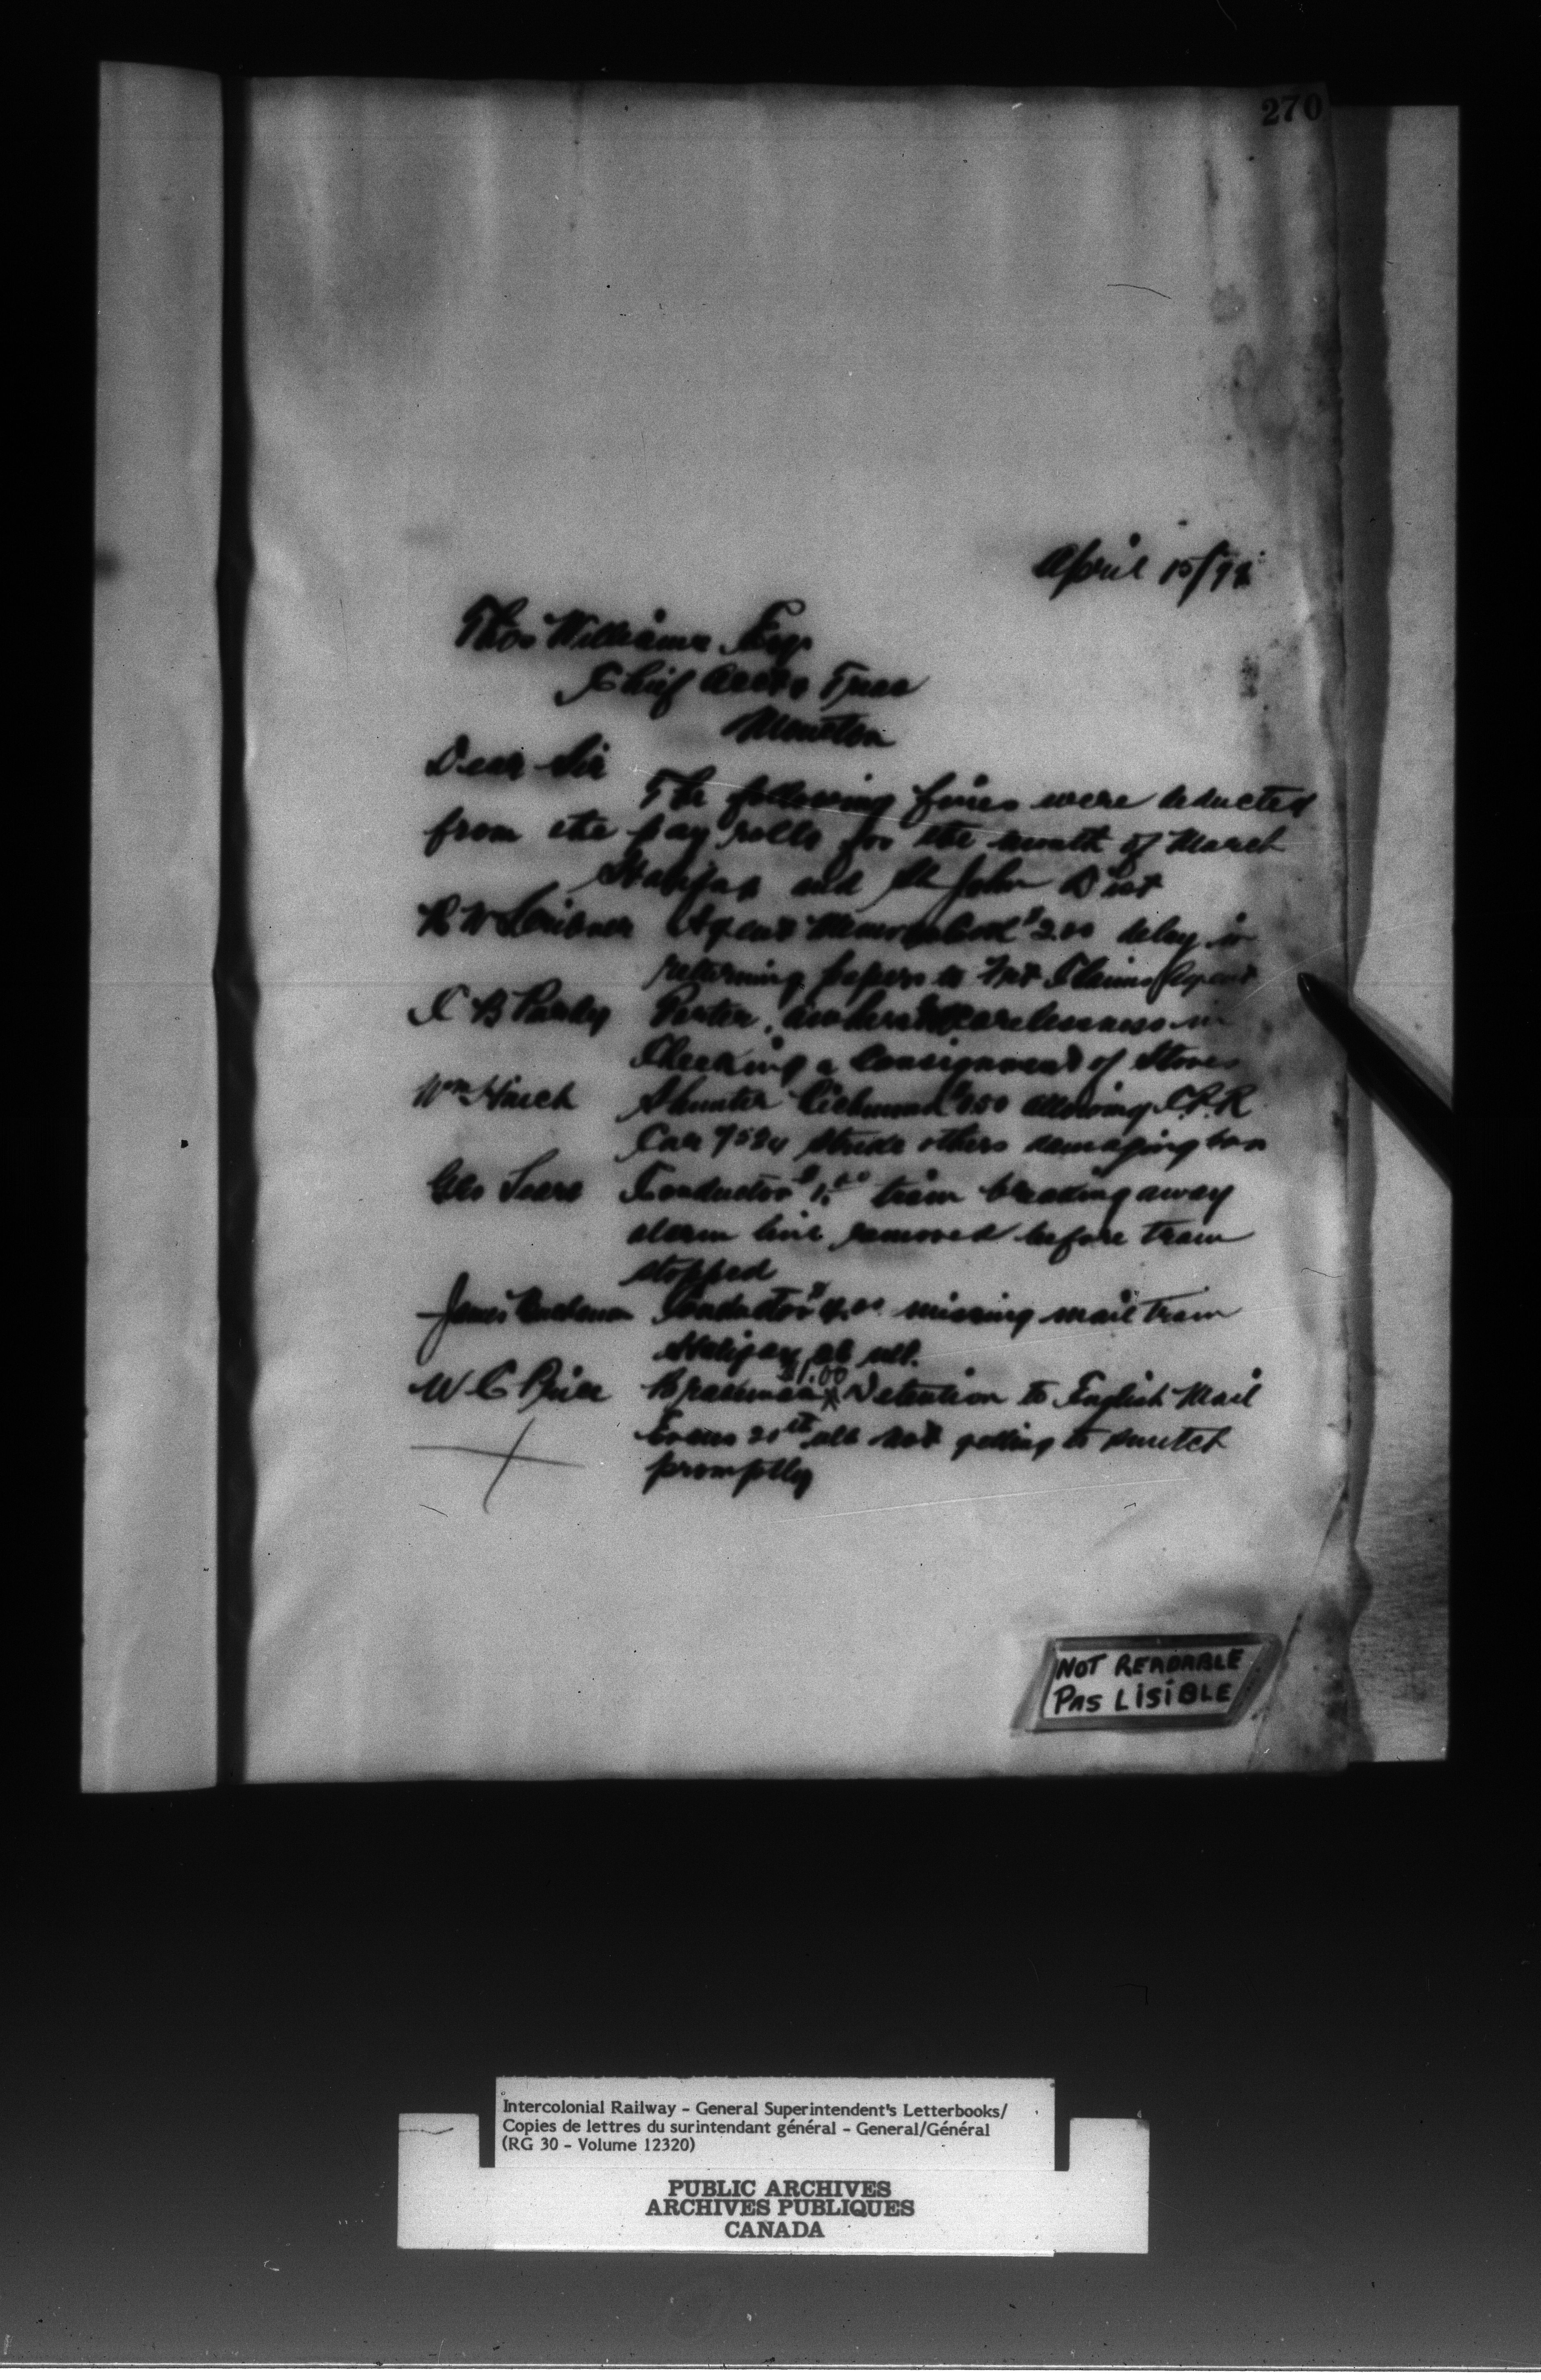 270
April 15/92
Thos Williams Esq
Chief Acctt & Treas
Moncton
Dear Sir
The following fines were deducted
from the pay rolls for the month of March
Halifax and St John Dist
R W Agent $2.00 delay in
returning papers to Frt Claims Agent
C B Porter, Amherst carelessness in
Checking a Consignment of Stoves
Wm Shunter Richmond allowing C.P.R
Car strike others damaging
Geo Sears Conductor train breaking away
alarm line removed before train
stopped
James Conductor missing mail train
Halifax ult.
W C Price Brakeman $1.00 Detention to English Mail
ult not getting to switch
promptly
NOT READABLE
PAS LISIBLE
Intercolonial Railway - General Superintendent's Letterbooks/
Copies de lettres du surintendant général - General/Général
(RG 30 - Volume 12320)
PUBLIC ARCHIVES
ARCHIVES PUBLIQUES
CANADA